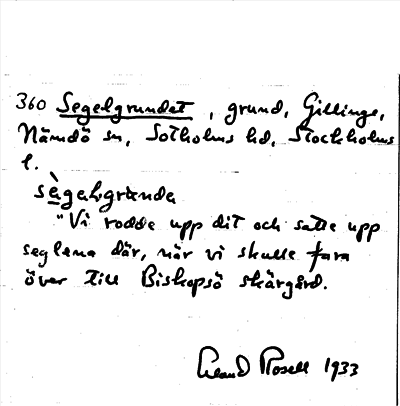 360 Segelgrundet, grund, Gillinge,
Nämdö sn, Sotholms hd, Stockholms
l.
sègəlgrùndə
"Vi rodde upp dit och satte upp
seglena där, när vi skulle fara
över till Biskopsö skärgård.
Rosell 1933